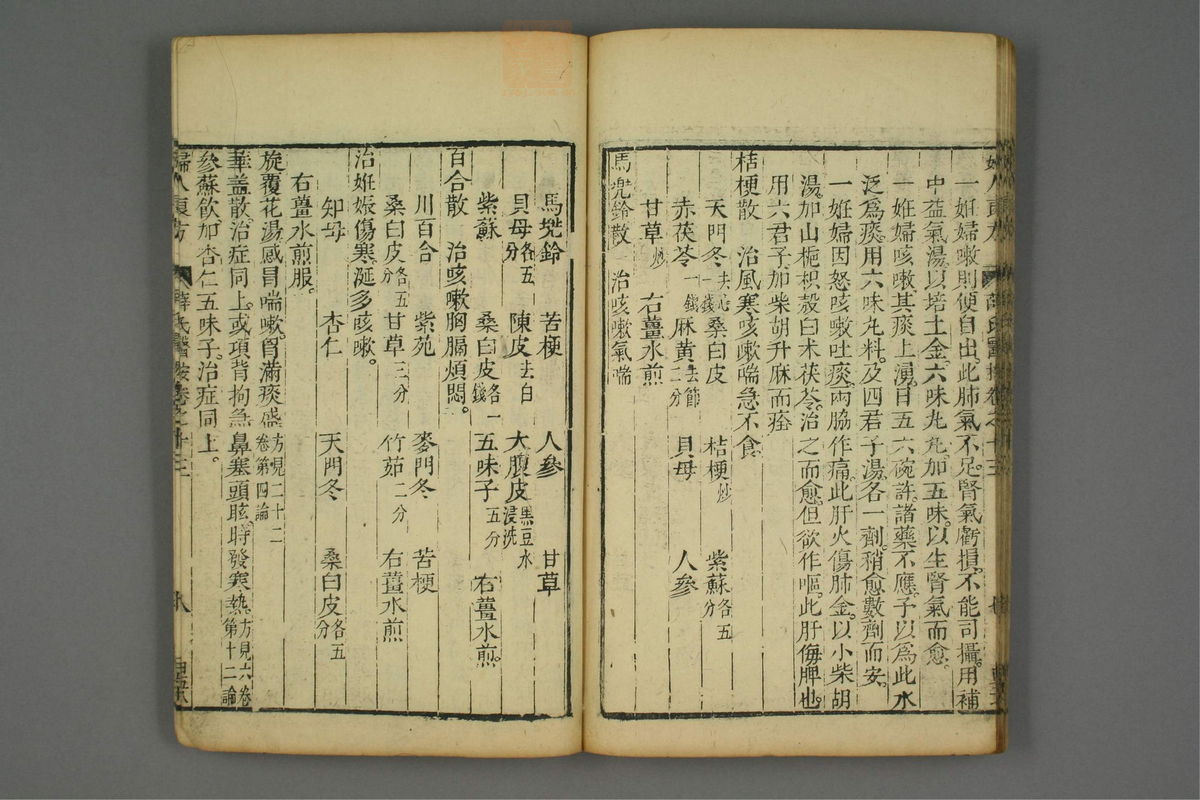 一妊婦嗽則便自出。此肺氣不足。腎氣虧損。不能司攝。用補
中益氣湯以培土金。六味丸加五味。以生腎氣而愈。
一妊婦咳嗽其痰上湧。日五六碗許。諸藥不應。予以爲此水
泛爲痰。用六味丸料。及四君子湯。各一劑。稍愈。數劑而安。
一妊婦因怒咳嗽吐痰。兩脇作痛。此肝火傷肺金。以小柴胡
湯。加山梔枳殼白朮茯苓。治之而愈。但欲作嘔。此肝侮脾也。
用六君子加柴胡升麻而痊
桔梗散 治風寒咳嗽喘急不食
天門冬去心一錢 桑白皮 桔梗炒 紫蘇各五分
赤茯苓一錢 麻黃去節二分 貝母 人參
甘草炒 右薑水煎
馬兜鈴散 治咳嗽氣喘
馬兜鈴 苦梗 人參 甘草
貝母各五分 陳皮去白 大腹皮黑豆水浸洗
紫蘇 桑白皮各一錢 五味子五分 右薑水煎。
百合散 治咳嗽胸膈煩悶。
川百合 紫菀 麥門冬 苦梗
桑白皮各五分 甘草三分 竹茹二分 右薑水煎
治妊娠傷寒涎多咳嗽。
知母 杏仁 天門冬 桑白皮各五分
右薑水煎服。
旋覆花湯感冒喘嗽。胃滿痰盛方見二十二卷第四論
華盖散治症同上。或項背拘急鼻塞頭眩。時發寒熱。方見六卷第十二論
參蘇飲加杏仁五味子。治症同上。
婦人良方 薛氏醫按卷之十三 八